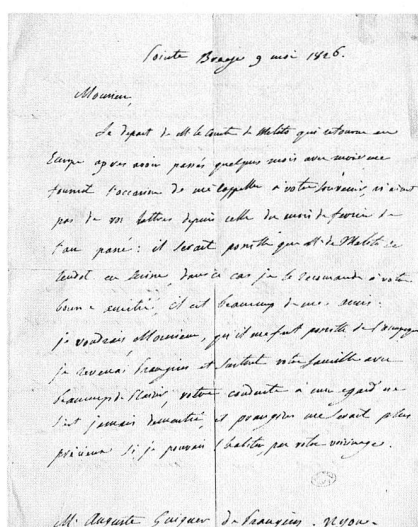 Pointe Breeze 9 mai 1826.
Monsieur,
Le depart de Mr le Comte de Melito qui retourne en
Europe apres avoir passés quelques mois avec moi me
fournit l'occasion de me rappeller à votre souvenir, n'aiant
pas de vos lettres depuis celle du mois de fevrier de
l'an passé: il serait possible que Mr de Melito se
rendit en Suisse, dans ce cas je le recomande à votre
bonne amitié, il est beaucoup de mes amis.
je voudrais Monsieur, qu'il me fut possible de l'
je reverrai Prangins et surtout votre famille avec
beaucoup de plaisir, votre conduite à mon egard ne
s'est jamais dementie, et prangins me serait plus
précieux si je pouvais l'habiter, par votre voisinage.
Mr Auguste Guiguer de Prangins. Nyon.